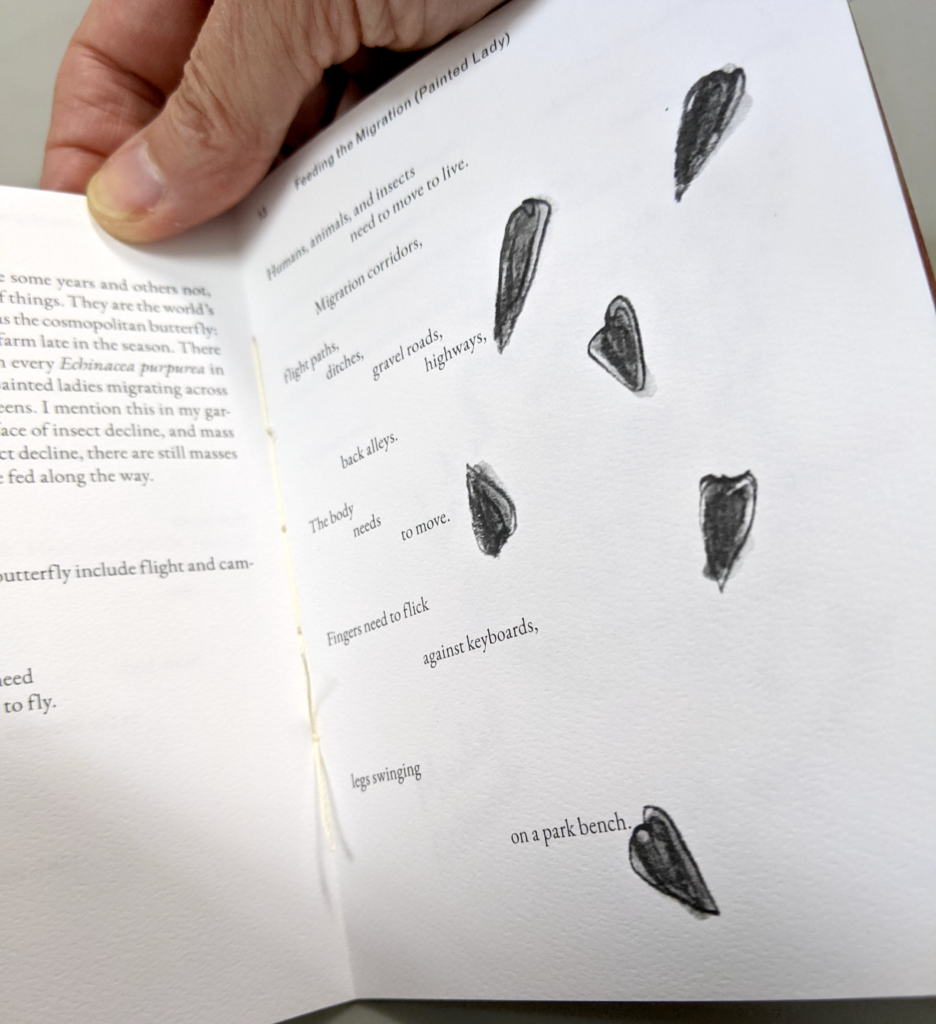 some years and others not,
things. They are the world's
the cosmopolitan butterfly:
farm late in the season. There
every Echinacea purpurea in
painted ladies migrating across
I mention this in my gar-
of insect decline, and mass
decline, there are still masses
fed along the way.
butterfly include flight and cam-
need
to fly.
Feeding the Migration (Painted Lady)
Humans, animals, and insects
need to move to live.
Migration corridors,
flight paths,
ditches,
gravel roads,
highways,
back alleys.
The body
needs
to move.
Fingers need to flick
against keyboards,
legs swinging
on a park bench.